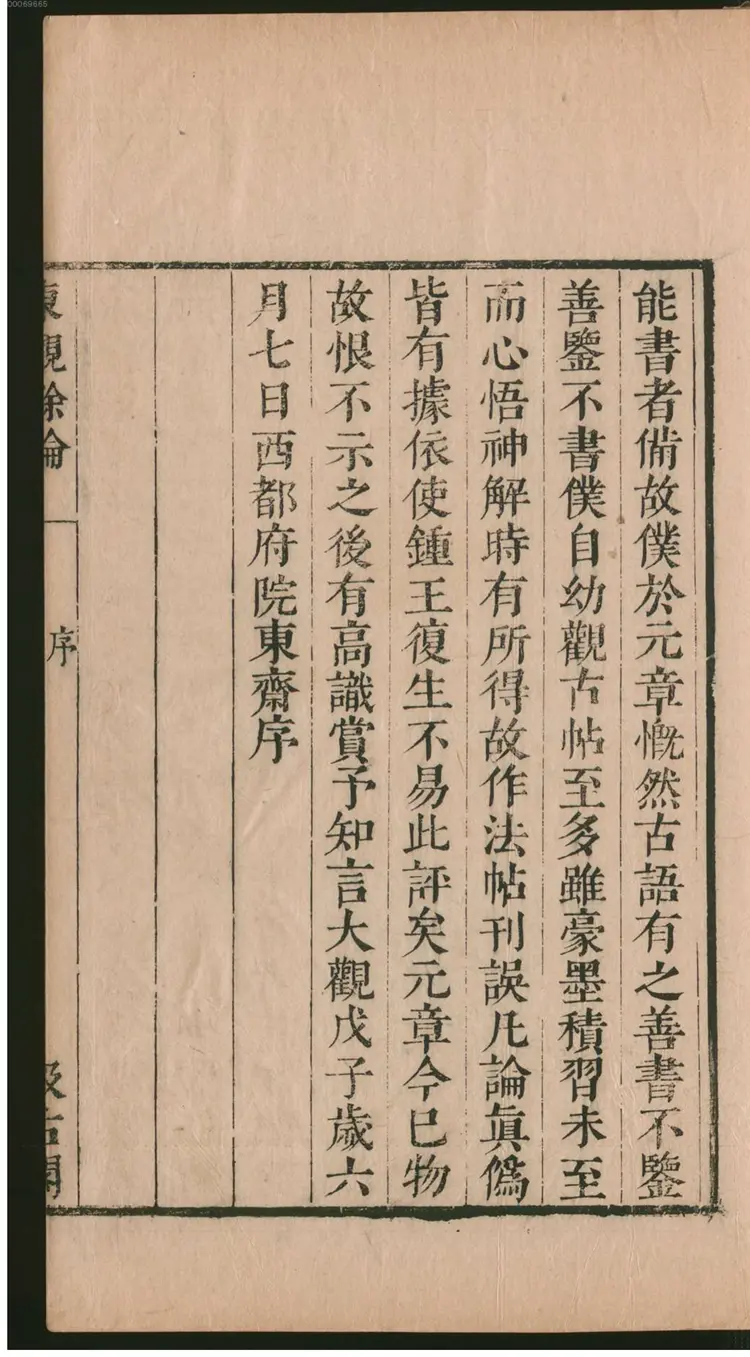 能書者備故僕於元章慨然古語有之善書不鑒
善鑒不書僕自幼觀古帖至多雖豪墨積習未至
而心悟神解時有所得故作法帖刊誤凡論眞僞
皆有據依使鍾王復生不易此評矣元章今已物
故恨不示之後有高識賞予知言大觀戊子歲六
月七日西都府院東齋序
東觀餘論
序
汲古閣
00069665